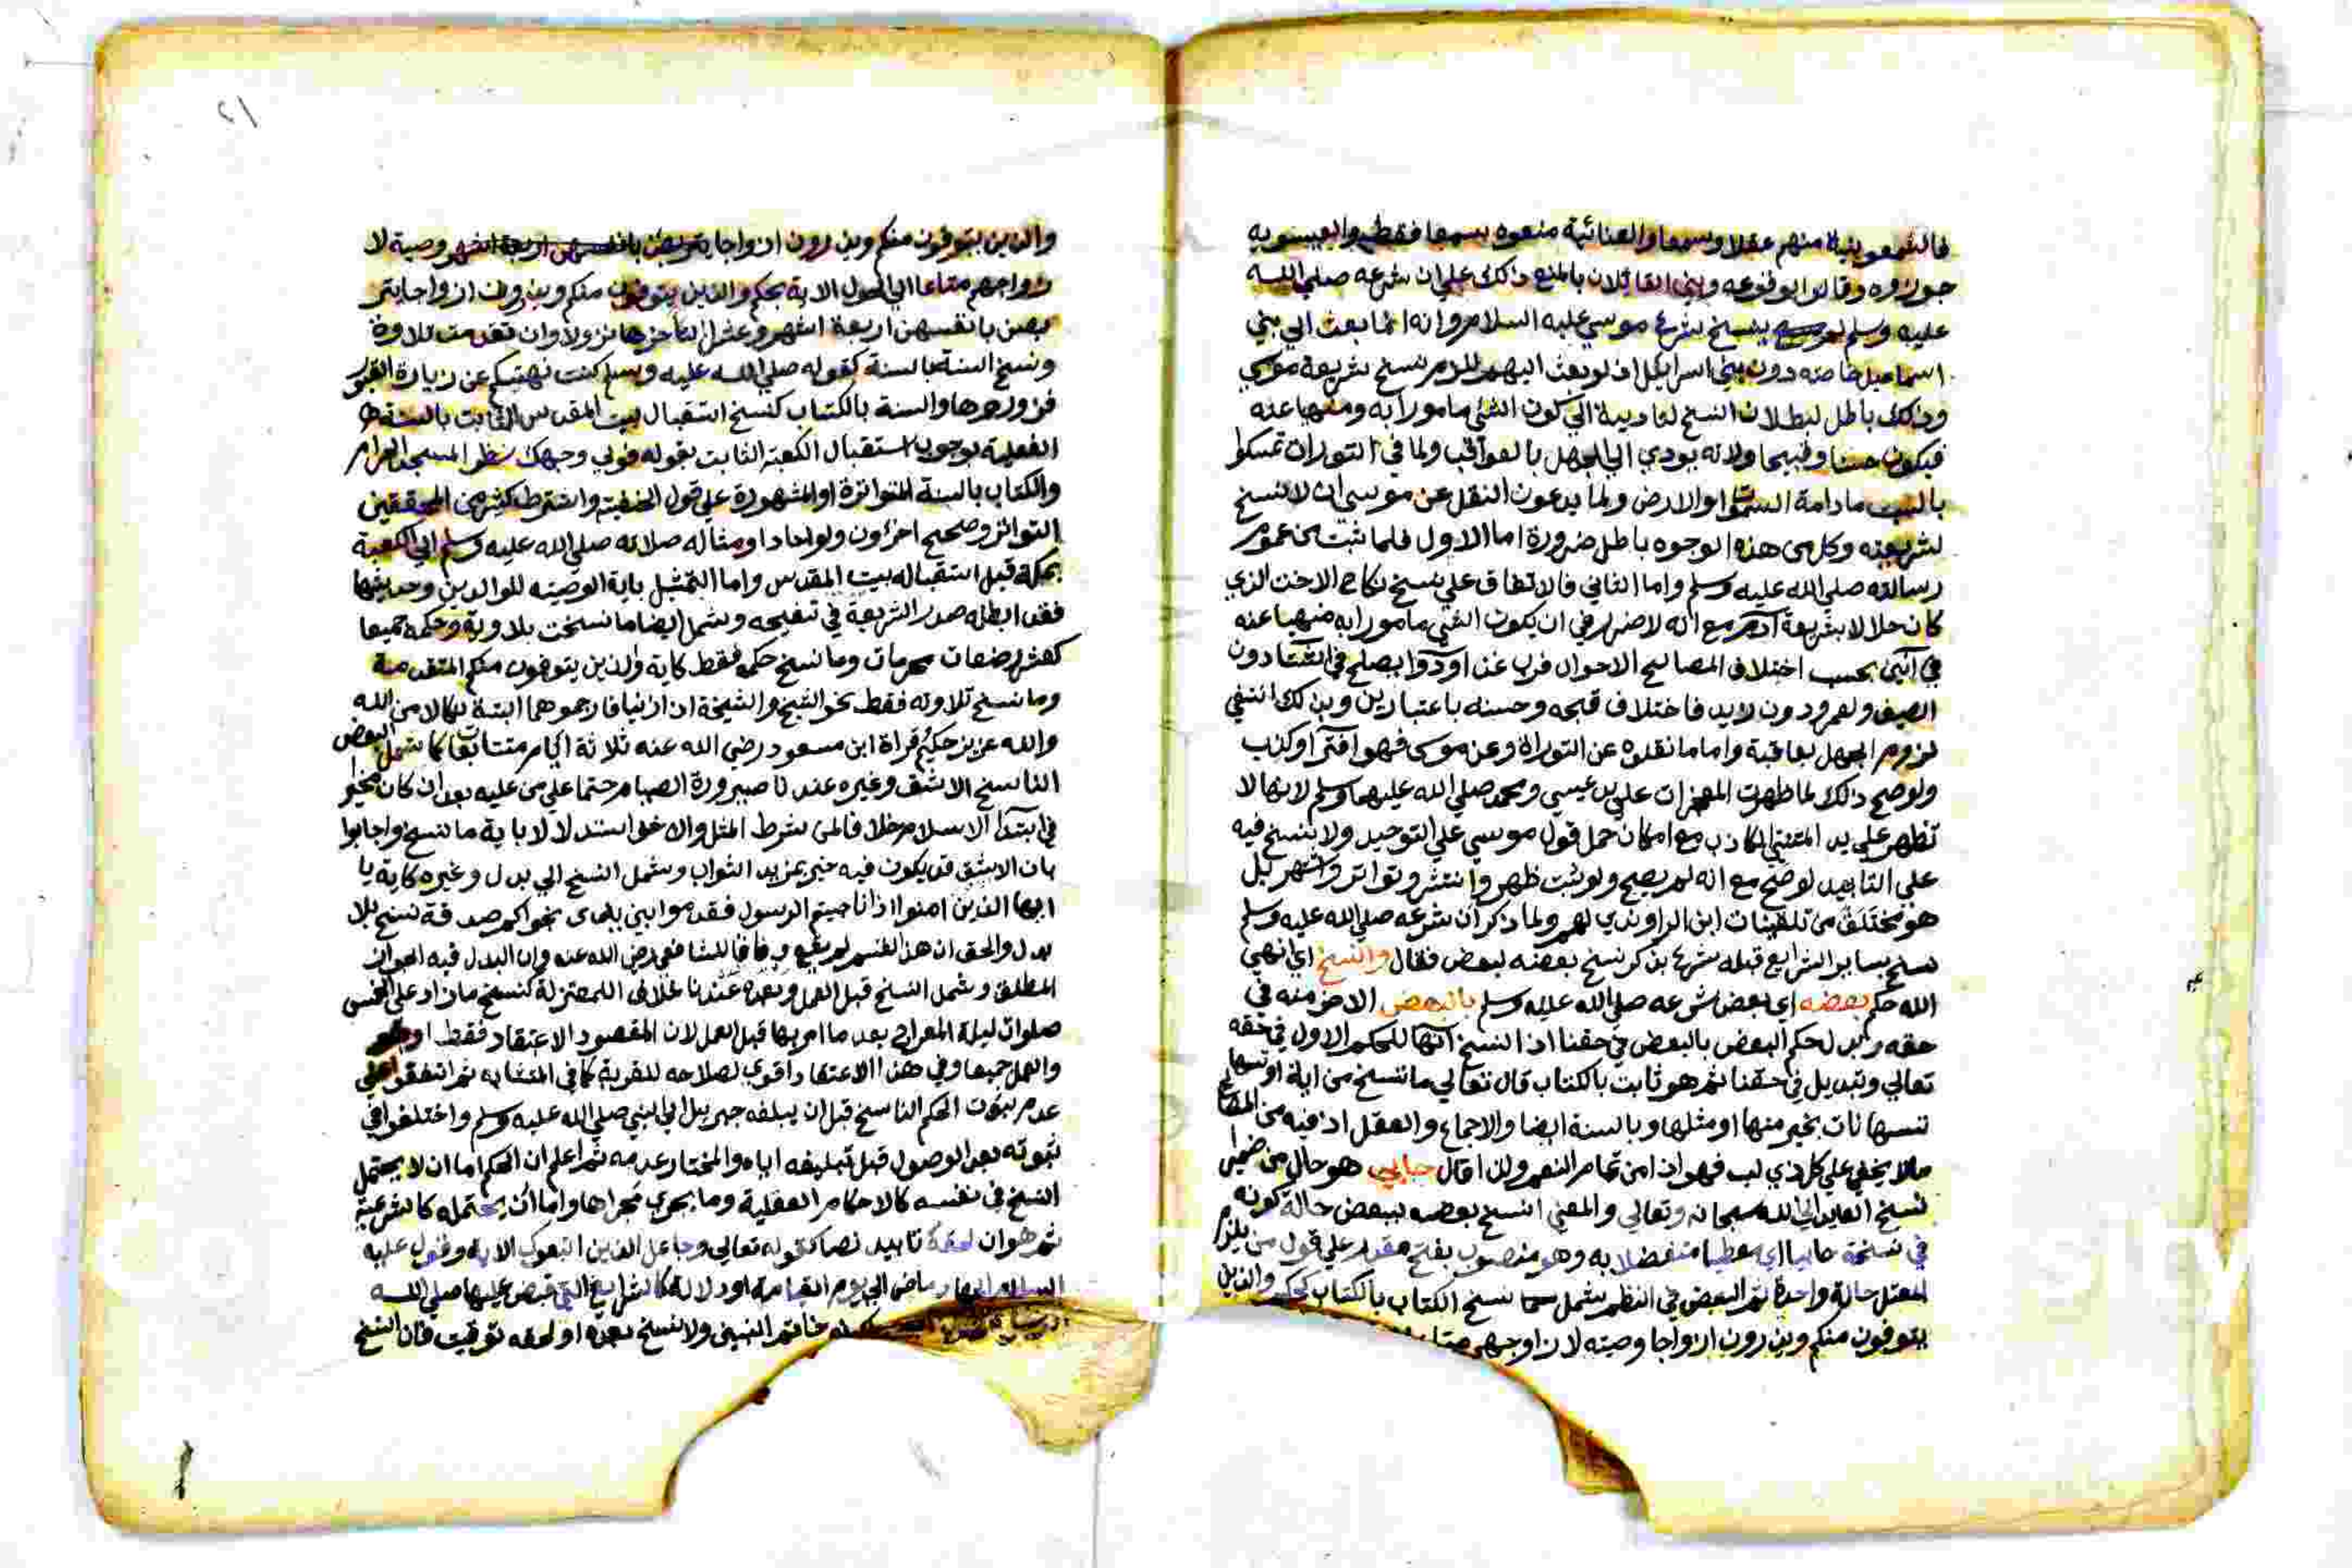 فالشمعونية منهم عقلا وسمعا والعنانية منعوه سمعا فقط والعيسوية
جوزوه وقالوا بوقوعه وبنى القائلان بالمنع ذلك على ان شرعه صلى الله
عليه وسلم لم ينسخ شرع موسى عليه السلام وانه انما بعث الى بني
اسماعيل خاصة دون بني اسرائيل اذ لو بعث اليهم للزم نسخ شريعة موسى
وذلك باطل لبطلان النسخ لتاديته الى كون الشئ مامورا به ومنهيا عنه
فيكون حسنا وقبيحا ولانه يودي الى الجهل بالعواقب ولما في التوراة تمسكوا
بالسبت مادامة السموات والارض ولما يدعون النقل عن موسى ان لا نسخ
لشريعته وكل من هذه الوجوه باطل ضرورة اما الاول فلما ثبت من عموم
رسالته صلى الله عليه وسلم واما الثاني فالاتفاق على نسخ نكاح الاخت الذي
كان حلالا بشريعة ادم مع انه لا ضرر في ان يكون الشي مامورا به منهيا عنه
في آنين بحسب اختلاف المصالح الاحوال فرب غذا اودوا يصلح في الشتا دون
الصيف ولعمرو دون زيد فاختلاف قبحه وحسنه باعتبارين وبذلك انتفى
لزوم الجهل بعاقبة واما ما نقلوه عن التوراة وعن موسى فهو افترآ وكذب
ولو صح ذلك لما ظهرت المعجزات على يد عيسى ومحمد صلى الله عليهما وسلم لانها لا
تظهر على يد المتنبي الكاذب مع امكان حمل قول موسى على التوحيد ولا ينسخ فيه
على التابيد لو صح مع انه لم يصح ولو ثبت ظهر وانتشر وتواتر واشتهر بل
هو مختلق من تلقينات ابن الراوندي لهم ولما ذكر ان شرعه صلى الله عليه وسلم
نسخ بساير الشرايع قبله شرع بذكر نسخ بعضه لبعض فقال والنسخ اي انهى
الله حكم بعضه اي بعض شرعه صلى الله عليه وسلم بالبعض الاخر منه في
حقه وبدل حكم البعض بالبعض في حقنا اذ النسخ انها للحكم الاول في حقه
تعالى وتبديل في حقنا ثم هو ثابت بالكتاب قال تعالى ما ننسخ من اية او ننسها
ننسها نات بخير منها او مثلها وبالسنة ايضا والاجماع والعقل اذ فيه من المصالح
مالا يخفى على كل ذي لب فهو اذا من تمام النعم ولذا قال حابي هو حال من ضمير
نسخ العايد الى الله سبحانه وتعالى والمعنى انسخ بعضه ببعض حالة كونه
في نسخه حابيا اي معطيا متفضلا به وهو منصوب بفتح مقدر على قول من يلزم
المعتل حالة واحدة ثم البعض في النظم شمل نسخ الكتاب بالكتاب كحكم والذين
يتوفون منكم ويذرون ازواجا وصيته لازواجهم
والذين يتوفون منكم ويذرون ازواجا وصية لا
زواجهم متاعا الى الحول الاية بحكم والذين يتوفون منكم ويذرون ازواجا يتر
بصن بانفسهن اربعة اشهر وعشرا لتاخرها نزولا وان تقدمت تلاوة
ونسخ السنة بالسنة كقوله صلى الله عليه وسلم كنت نهيتكم عن زيارة القبور
فزوروها والسنة بالكتاب كنسخ استقبال بيت المقدس الثابت بالسنة
الفعلية بوجوب استقبال الكعبة الثابت بقوله فولي وجهك شطر المسجد الحرام
والكتاب بالسنة المتواترة او المشهورة على قول الحنفية واشترط كثير من المحققين
التواتر وصحح اخرون ولو احادا ومثاله صلاته صلى الله عليه وسلم الى الكعبة
بمكة قبل استقباله بيت المقدس واما التمثيل باية الوصية للوالدين وحديثها
فقد ابطله صدر الشريعة في تنقيحه وشمل ايضا ما نسخت تلاوته وحكمه جميعا
كعشر رضعات محرمات وما نسخ حكمه فقط كاية والذين يتوفون منكم المتقدمة
وما نسخ تلاوته فقط نحو الشيخ والشيخة اذا زنيا فارجموهما البتة نكالا من الله
والله عزيز حكيم قراة ابن مسعود رضي الله عنه ثلاثة ايام متتابعات كما شمل البعض
الناسخ الاشق وغيره عندنا صيرورة الصيام حتما على من عليه بعد ان كان مخيرا
في ابتدآ الاسلام خلافا لمن شرط المثل والاخف استدلالا باية ما ننسخ واجابوا
بان الاشق قد يكون فيه خير بمزيد الثواب وشمل النسخ الى بدل وغيره كاية يا
ايها الذين امنوا اذا ناجيتم الرسول فقدموا بين يدى نجواكم صدقة نسخ بلا
بدل والحق ان هذا القسم لم يقع وفاقا للشافعي رضى الله عنه وان البدل فيه الجواز
المطلق وشمل النسخ قبل الفعل وبعده عندنا خلافا للمعتزلة كنسخ مازاد على الخمس
صلوات ليلة المعراج بعد ما امر بها قبل العمل لان المقصود الاعتقاد فقط او هو
والعمل جميعا وفي هذا الاعتقاد اقوى لصلاحه للقربة كما في المتشابه ثم اتفقوا على
عدم ثبوت الحكم الناسخ قبل ان يبلغه جبريل الى النبي صلى الله عليه وسلم واختلفوا في
ثبوته بعد الوصول قبل تبليغه اياه والمختار عدمه ثم اعلم ان الحكم اما ان لا يحتمل
النسخ في نفسه كالاحكام العقلية وما يجري مجراها واما ان يحتمله كالشرعية
ثم هو ان لحقه تابيد نصا كقوله تعالى وجاعل الذين اتبعوك الاية وقول عليه
السلام الجهاد ماض الى يوم القيامة او دلالة كالشرايع التي قبض عليها صلى الله
خاتم النبيين ولا نسخ بعده او لحقه توقيت فان النسخ